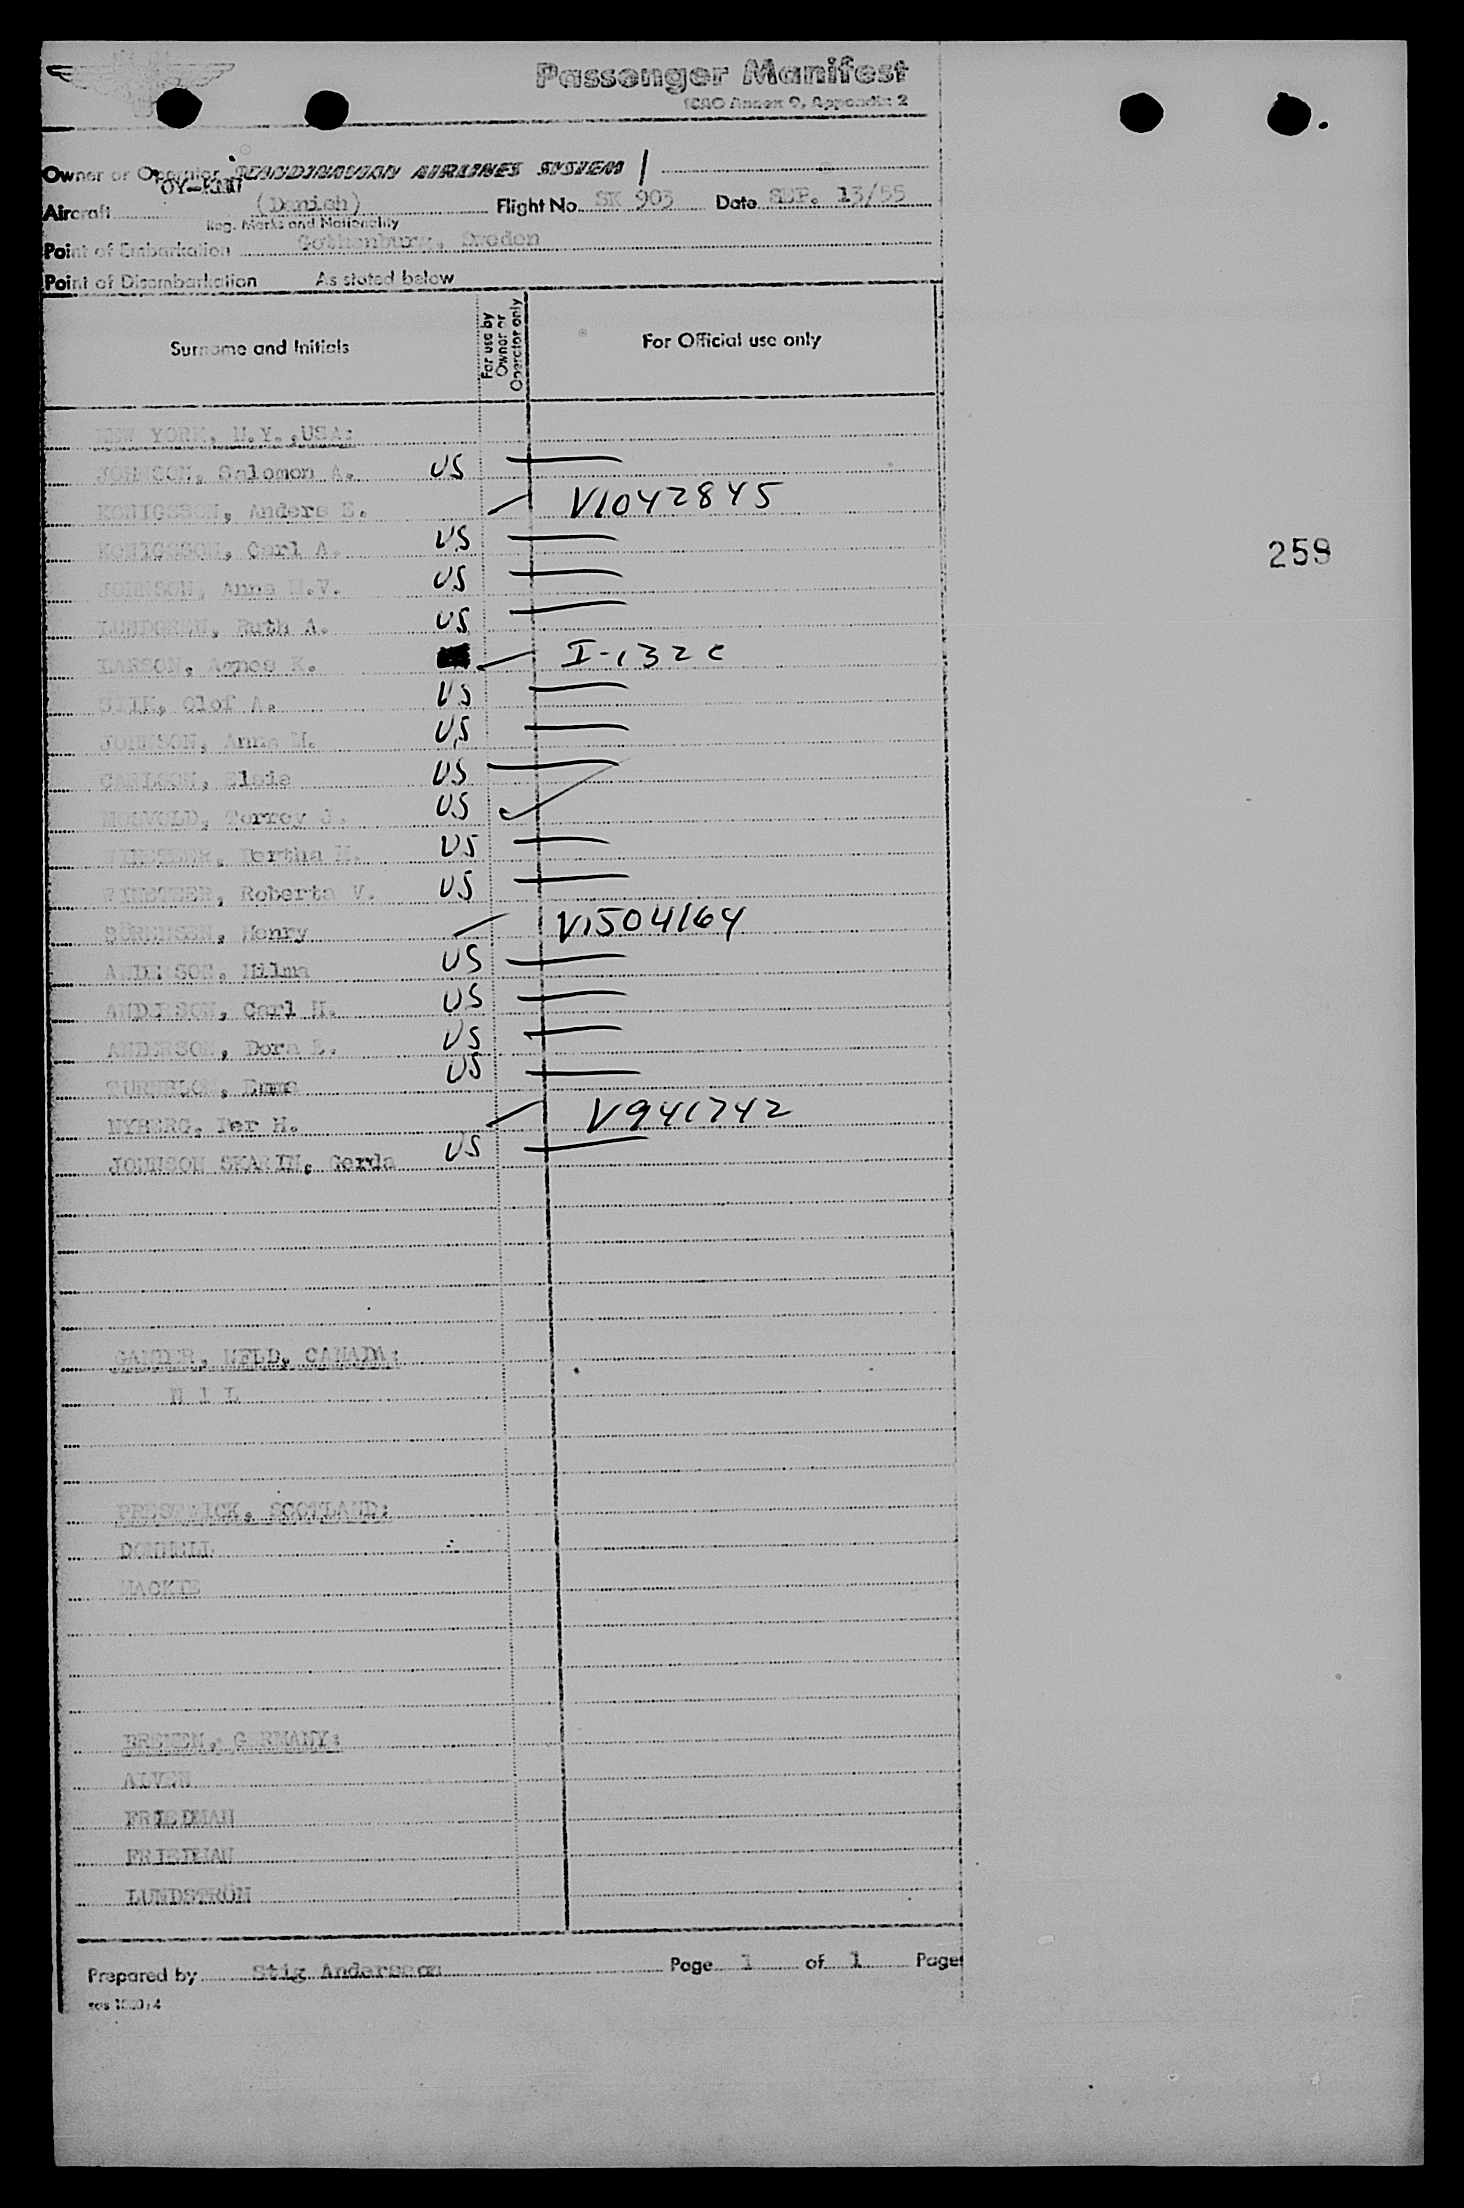 Passenger Manifest
ICAO Annex 9, Appendix 2
Owner or Operator SCANDINAVIAN AIRLINES SYSTEM
Aircraft (Danish) Flight No. SK 903 Date SEP. 13/55
Reg. Marks and Nationality
Point of Embarkation Gothenburg, Sweden
Point of Disembarkation As stated below
Surname and Initials For use by Owner or Operator only For Official use only
NEW YORK, N.Y.,USA:
JOHNSON, Salomon A. US
KONIGSSON, Anders E. V1042845
KONIGSSON, Carl A. US
JOHNSON, Anna M.V. US
LUNDGREN, Ruth A. US
258
LARSON, Agnes K. I-132c
Olof A. US
JOHNSON, Anna M. US
CARLSON, Elsie US
Torrey J. US
Bertha M. US
Roberta V. US
Henry V1504164
ANDERSON, Hilma US
ANDERSON, Carl H. US
ANDERSON, Dora E. US
Emma US
NYBERG, Per H. V941742
JOHNSON SKARIN, Gerda US
GANDER, NFLD, CANADA:
N I L
PRESTWICK, SCOTLAND:
DONNELL
MACKIE
BREMEN, GERMANY:
ALVEN
FRIEDMAN
FRIEDMAN
LUNDSTRÖM
Prepared by Stig Andersson Page 1 of 1 Pages